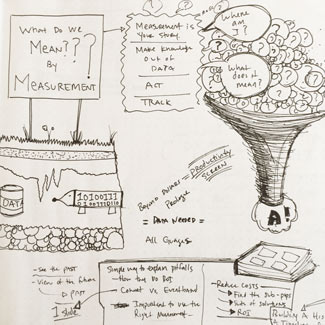 What Do We
Mean???
By
Measurement
Measurement is
Your Story.
Make Knowledge
out of
DATA
ACT
TRACK
Where
am
I?
What
does it
mean?
DATA
1010011
A!
Productivity
Screen
= Data Needed =
All Gauges
- see the past
- View of the future
past
1 slide
Simple way to explain pitfalls
- How they Do ROI
- Connect vs Everboard
Important to use the
Right Measurement
- Reduce Costs
Find the sub-pops
Sets of solutions
ROI
Building A